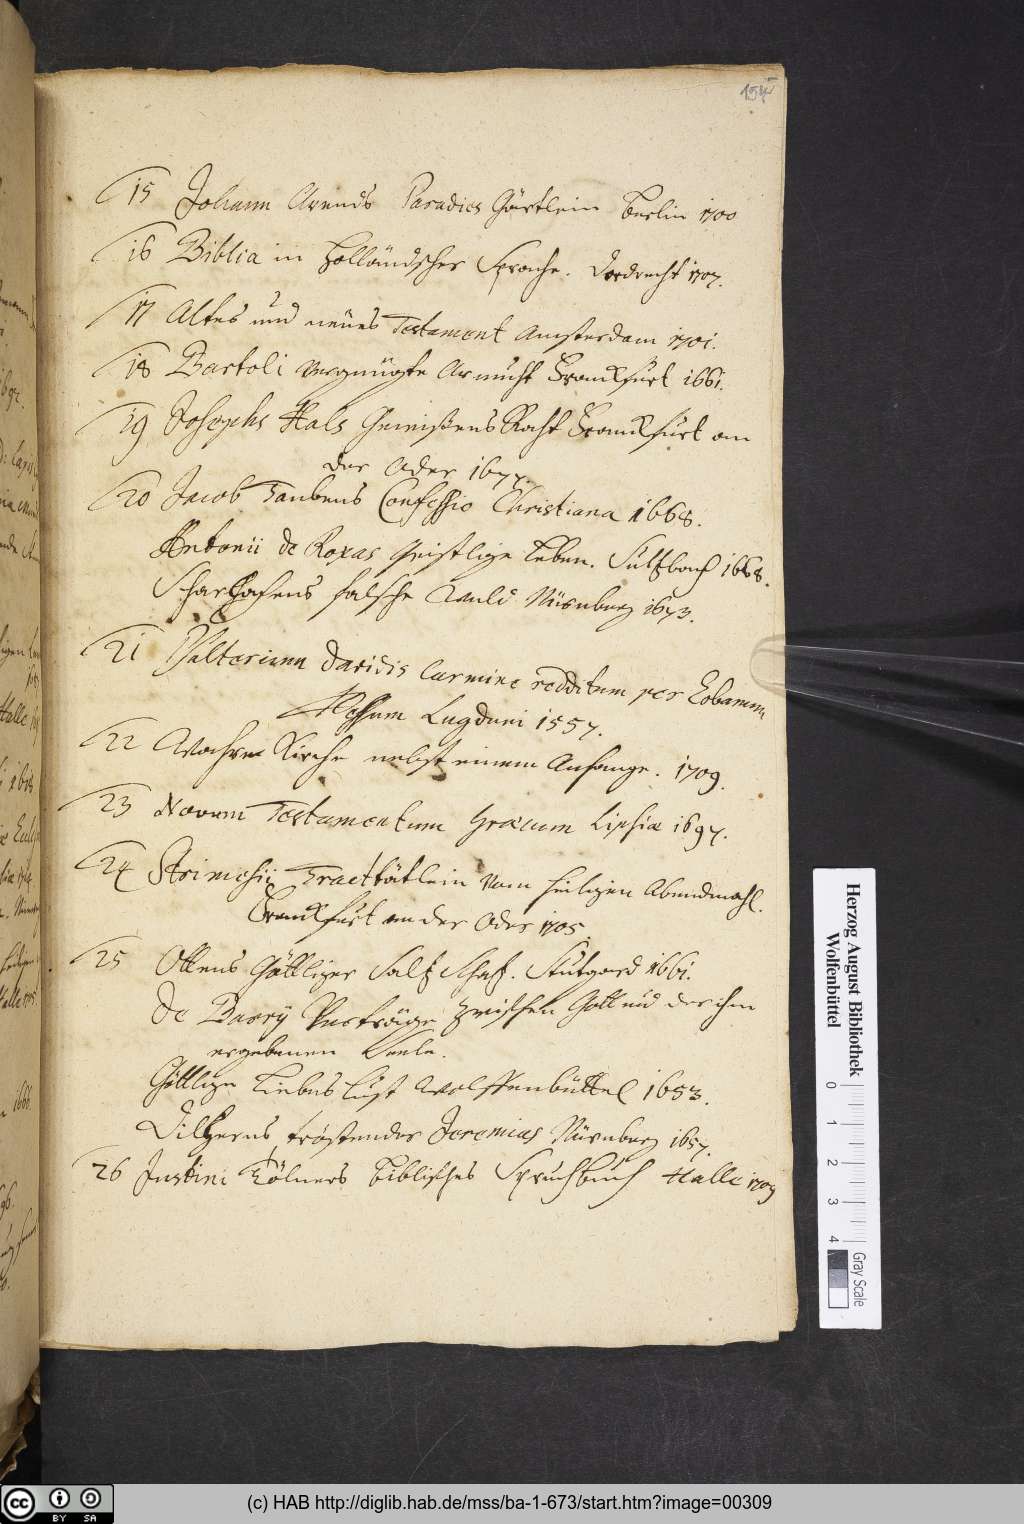 15 Johann Arends Paradies Gärtlein Berlin 1700
16 Biblia in Holländischer Sprache. Dordrecht 1707.
17 Altes und neües Testament Amsterdam 1701.
18 Bartoli vergnügte Armuht Franckfurt 1661.
19 Josephs Hals Gewißens Raht Franckfurt an
der Oder 1677.
20 Jacob Taubens Confessio Christiana 1668.
Antonii de Roxas Geistlige Leben. Sultzbach 1668.
falsche Nürnberg 1673.
21 Psalterium Davidis Carmine redditum per Eobanum
Hessum Lugduni 1557.
22 Wahre Kirche nebst einem Anfange. 1709.
23 Novum Testamentum Græcum Lipsiæ 1697.
24 Strimesii Tractätlein vom heiligen Abendmahl.
Franckfurt an der Oder 1705.
25 Ottens Göttliger Stutgard 1661.
De Barry Verträge zwischen Gott und der ihm
ergebenen Seele.
Göttlige Liebes Lust Wolffenbüttel 1653.
Dilherns tröstender Jeremias Nürnberg 1657.
26 Justini Töllners Biblisches Spruchbuch Halle 1709
Herzog August Bibliothek
Wolfenbüttel
0 1 2 3 4
Gray Scale
cc BY SA
(c) HAB http://diglib.hab.de/mss/ba-1-673/start.htm?image=00309